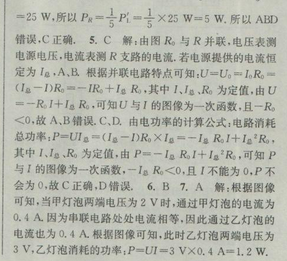 =25 W,所以 P_R=1/5 P'_R=1/5×25 W=5 W. 所以 ABD
错误,C正确. 5. C 解:由图 R₀ 与 R 并联,电压表测
电源电压,电流表测 R 支路的电流.若电源提供的电流恒
定为 I总,A、B. 根据并联电路特点可知:U=U₀=I₀R₀=
(I总-I)R₀=-IR₀+I总R₀,其中 I、I总、R₀ 为定值,由 U
=-R₀I+I总R₀,可知 U 与 I 的图像为一次函数,且-R₀
<0,故 A、B错误. C、D. 由电功率的计算公式:电路消耗
总功率:P=UI总=(I总-I)R₀×I总=-I总R₀I+I总²R₀,
其中 I、I总、R₀ 为定值,由 P=-I总R₀I+I总²R₀,可知 P
与 I 的图像为一次函数,-I总R₀<0,且 I 不能为 0,P 不
会为 0,故 C正确,D错误. 6. B 7. A 解:根据图像
可知,当甲灯泡两端电压为 2 V 时,通过甲灯泡的电流为
0.4 A. 因为串联电路处处电流相等,因此通过乙灯泡的
电流也为 0.4 A. 根据图像可知,此时乙灯泡两端电压为
3 V,乙灯泡消耗的功率:P=UI=3 V×0.4 A=1.2 W.